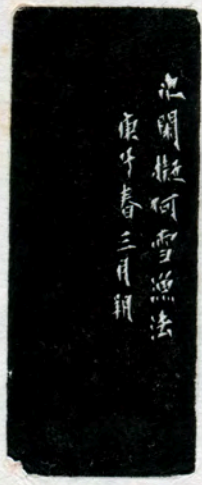 氾閑擬何雪漁法
庚午春三月朔